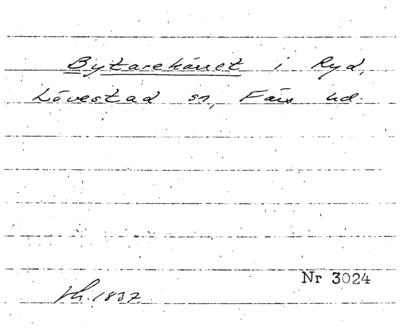 Bytarehuset i Ryd,
Lövestad sn, Färs hd.
Nr 3024
th. 1837